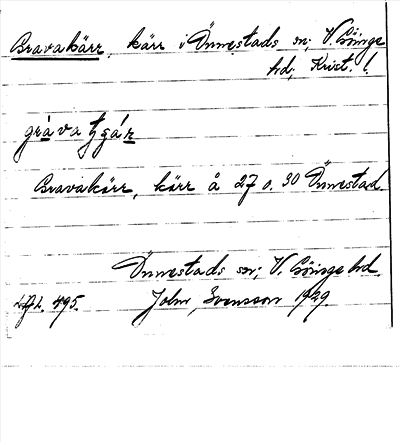 Bravakärr, kärr i Önnestads sn; V. Göinge
hd; Krist. l.
gráva tjár
Bravakärr, kärr å 27 o. 30 Önnestad.
Önnestads sn; V. Göinge hd.
495. John Svensson 1929.